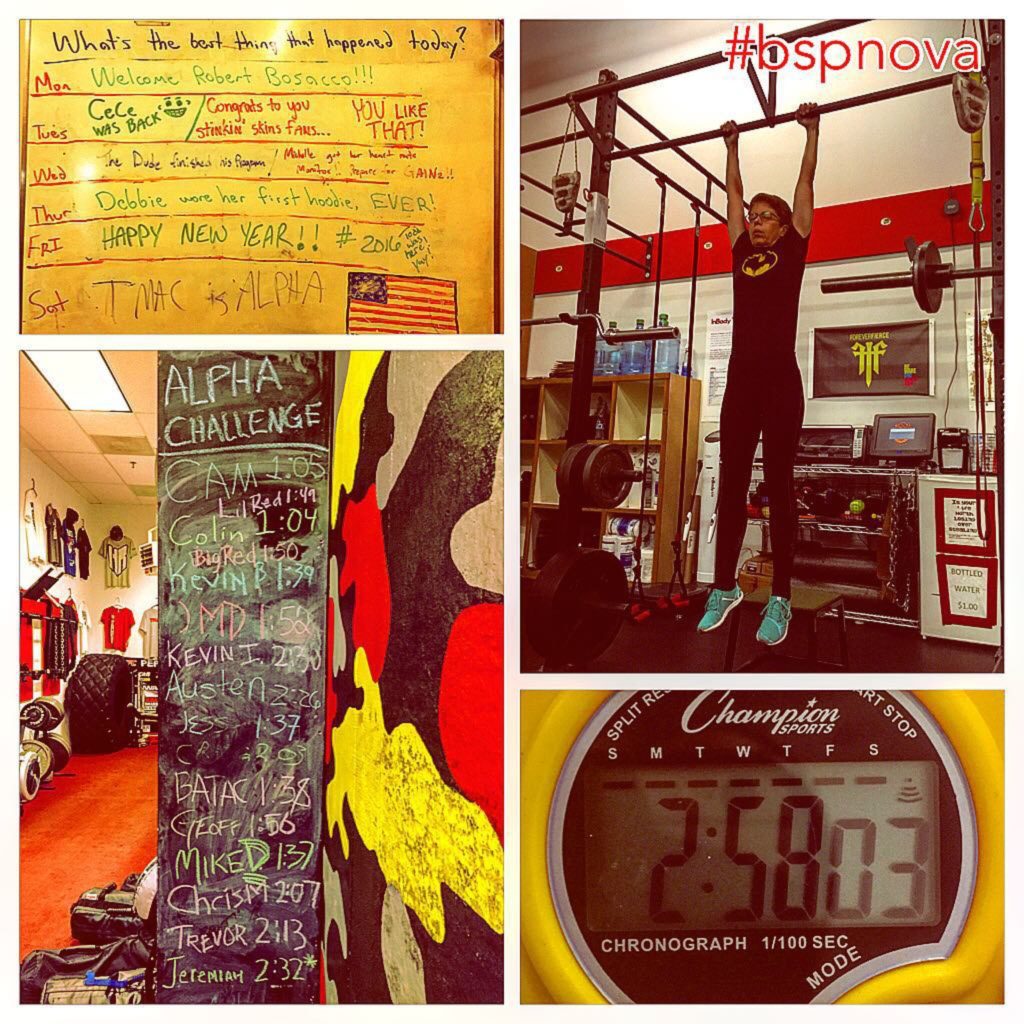 What's the best thing that happened today?
Mon Welcome Robert Bosacco!!!
Tues CeCe WAS BACK / Congrats to you stinkin' skins fans... YOU LIKE THAT!
Wed The Dude finished his Program / Michelle got her heart rate Monitor!! Prepare for GAINZ!!
Thur Debbie wore her first hoodie, EVER!
FRI HAPPY NEW YEAR!! #2016
Sat TMAC is ALPHA
#bspnova
InBody
FOREVERFIERCE
BOTTLED
WATER
$1.00
ALPHA
CHALLENGE
CAM 1:05
Lil Red 1:49
Colin 1:04
Big Red 1:50
Kevin B 1:39
DMD 1:52
KEVIN I. 2:30
Austen 2:26
JESS 1:37
BATAC 1:38
GEOFF 1:56
MIKE D 1:37
Chris M 2:07
TREVOR 2:13
Jeremiah 2:32*
SPLIT RES
START STOP
Champion
SPORTS
S M T W T F S
2:58 03
CHRONOGRAPH 1/100 SEC
MODE